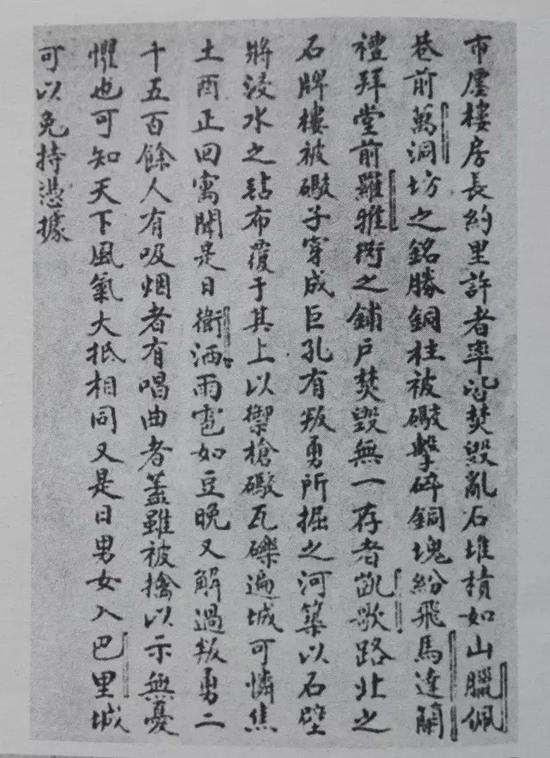 市廛樓房長約里許者率皆焚毀亂石堆積如山臘佩
巷前萬洞坊之銘勝銅柱被礮擊碎銅塊紛飛馬達蘭
禮拜堂前羅雅街之鋪戶焚毀無一存者凱歌路北之
石牌樓被礮子穿成巨孔有叛勇所掘之河築以石壁
將浸水之毡布覆于其上以禦槍礮瓦礫遍城可憐焦
土酉正回寓聞是日衛洒雨雹如豆晚又解過叛勇二
千五百餘人有吸烟者有唱曲者蓋雖被擒以示無憂
懼也可知天下風氣大抵相同又是日男女入巴里城
可以免持憑據